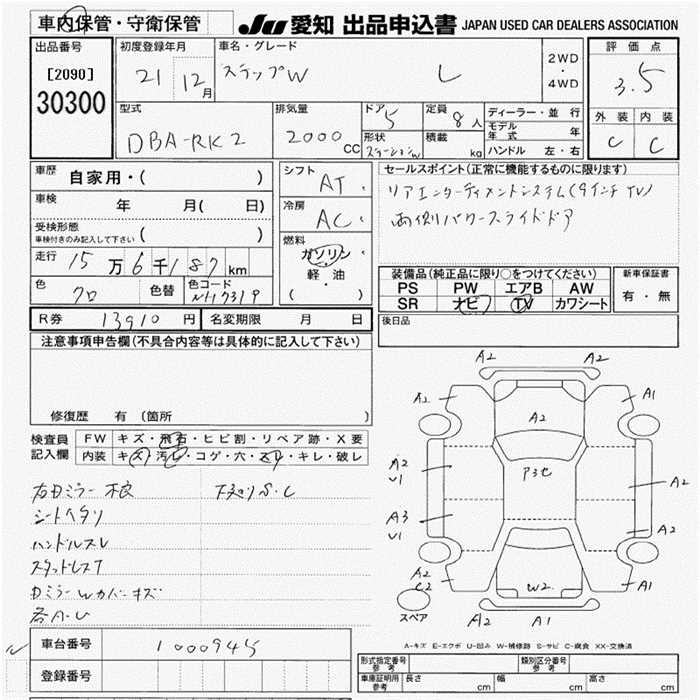 車内保管・守衛保管
JU 愛知 出品申込書 JAPAN USED CAR DEALERS ASSOCIATION
出品番号
[2090]
30300
初度登録年月
21 12月
車名・グレード
ステップW L
2WD
・
4WD
評価点
3.5
外装 内装
C C
型式
DBA-RK2
排気量
2000 CC
ドア
5
形状
ステーションW
定員
8人
積載
kg
ディーラー・並行
モデル年式 年
ハンドル 左・右
車歴
自家用・( )
車検 年 月( 日)
受検形態
車検付きのみ記入して下さい ( )
走行 15万6千187km
色 クロ 色替
色コード NH731P
シフト
AT
冷房
AC
燃料
ガソリン
・
軽・油
( )
セールスポイント(正常に機能するものに限ります)
リアエンターティメントシステム(9インチTV)
両側パワースライドドア
装備品(純正品に限り○をつけてください)
PS PW エアB AW
SR ナビ TV カワシート
新車保証書
有・無
R券 13910円 名変期限 月 日
後日品
注意事項申告欄(不具合内容等は具体的に記入して下さい)
修復歴 有(箇所 )
検査員記入欄
FW キズ・飛石・ヒビ割・リペア跡・X要
内装 キズ・汚レ・コゲ・穴・スレ・キレ・破レ
右ドミラー不良
シートヘタリ
ハンドルスレ
スタッドレスT
ドミラーWカバーキズ
各A・U
下廻りS・C
A2 A2
A2 A1
A2
A2
U1
P3セ
A2
A3
U1
A2
A2
C2
W2
A1
スペア
A2 A1
A-キズ E-エクボ U-凹み W-補修跡 S-サビ C-腐食 XX-交換済
車台番号 1000945
登録番号
形式指定番号
参考
類別区分番号
参考
車庫証明用
参考
長さ cm 幅 cm 高さ cm